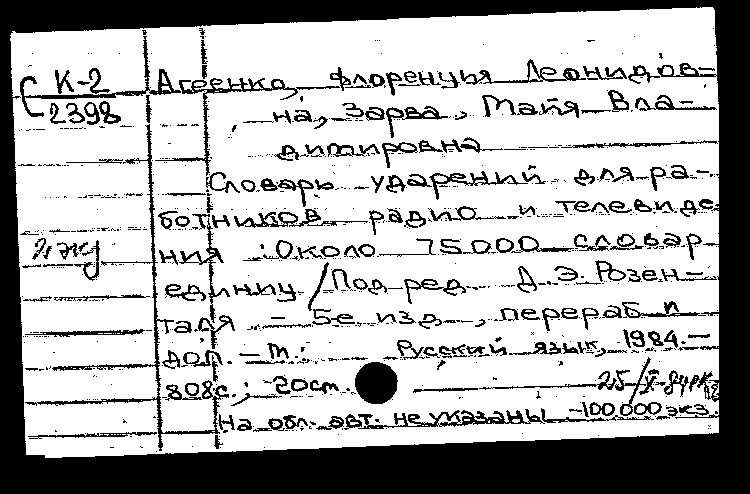 К-2 Агеенко, Флоренция Леонидов-
2398 на, Зарва, Майя Вла-
димировна
Словарь ударений для ра-
ботников радио и телевиде
ния : Около 75000 словар.
единиц / Под ред. Д. Э. Розен-
таля - 5-е изд., перераб и
доп. - М.: Русский язык, 1984. -
808с.; 20см. 25/X-84г
На обл. авт. не указаны -100.000 экз.